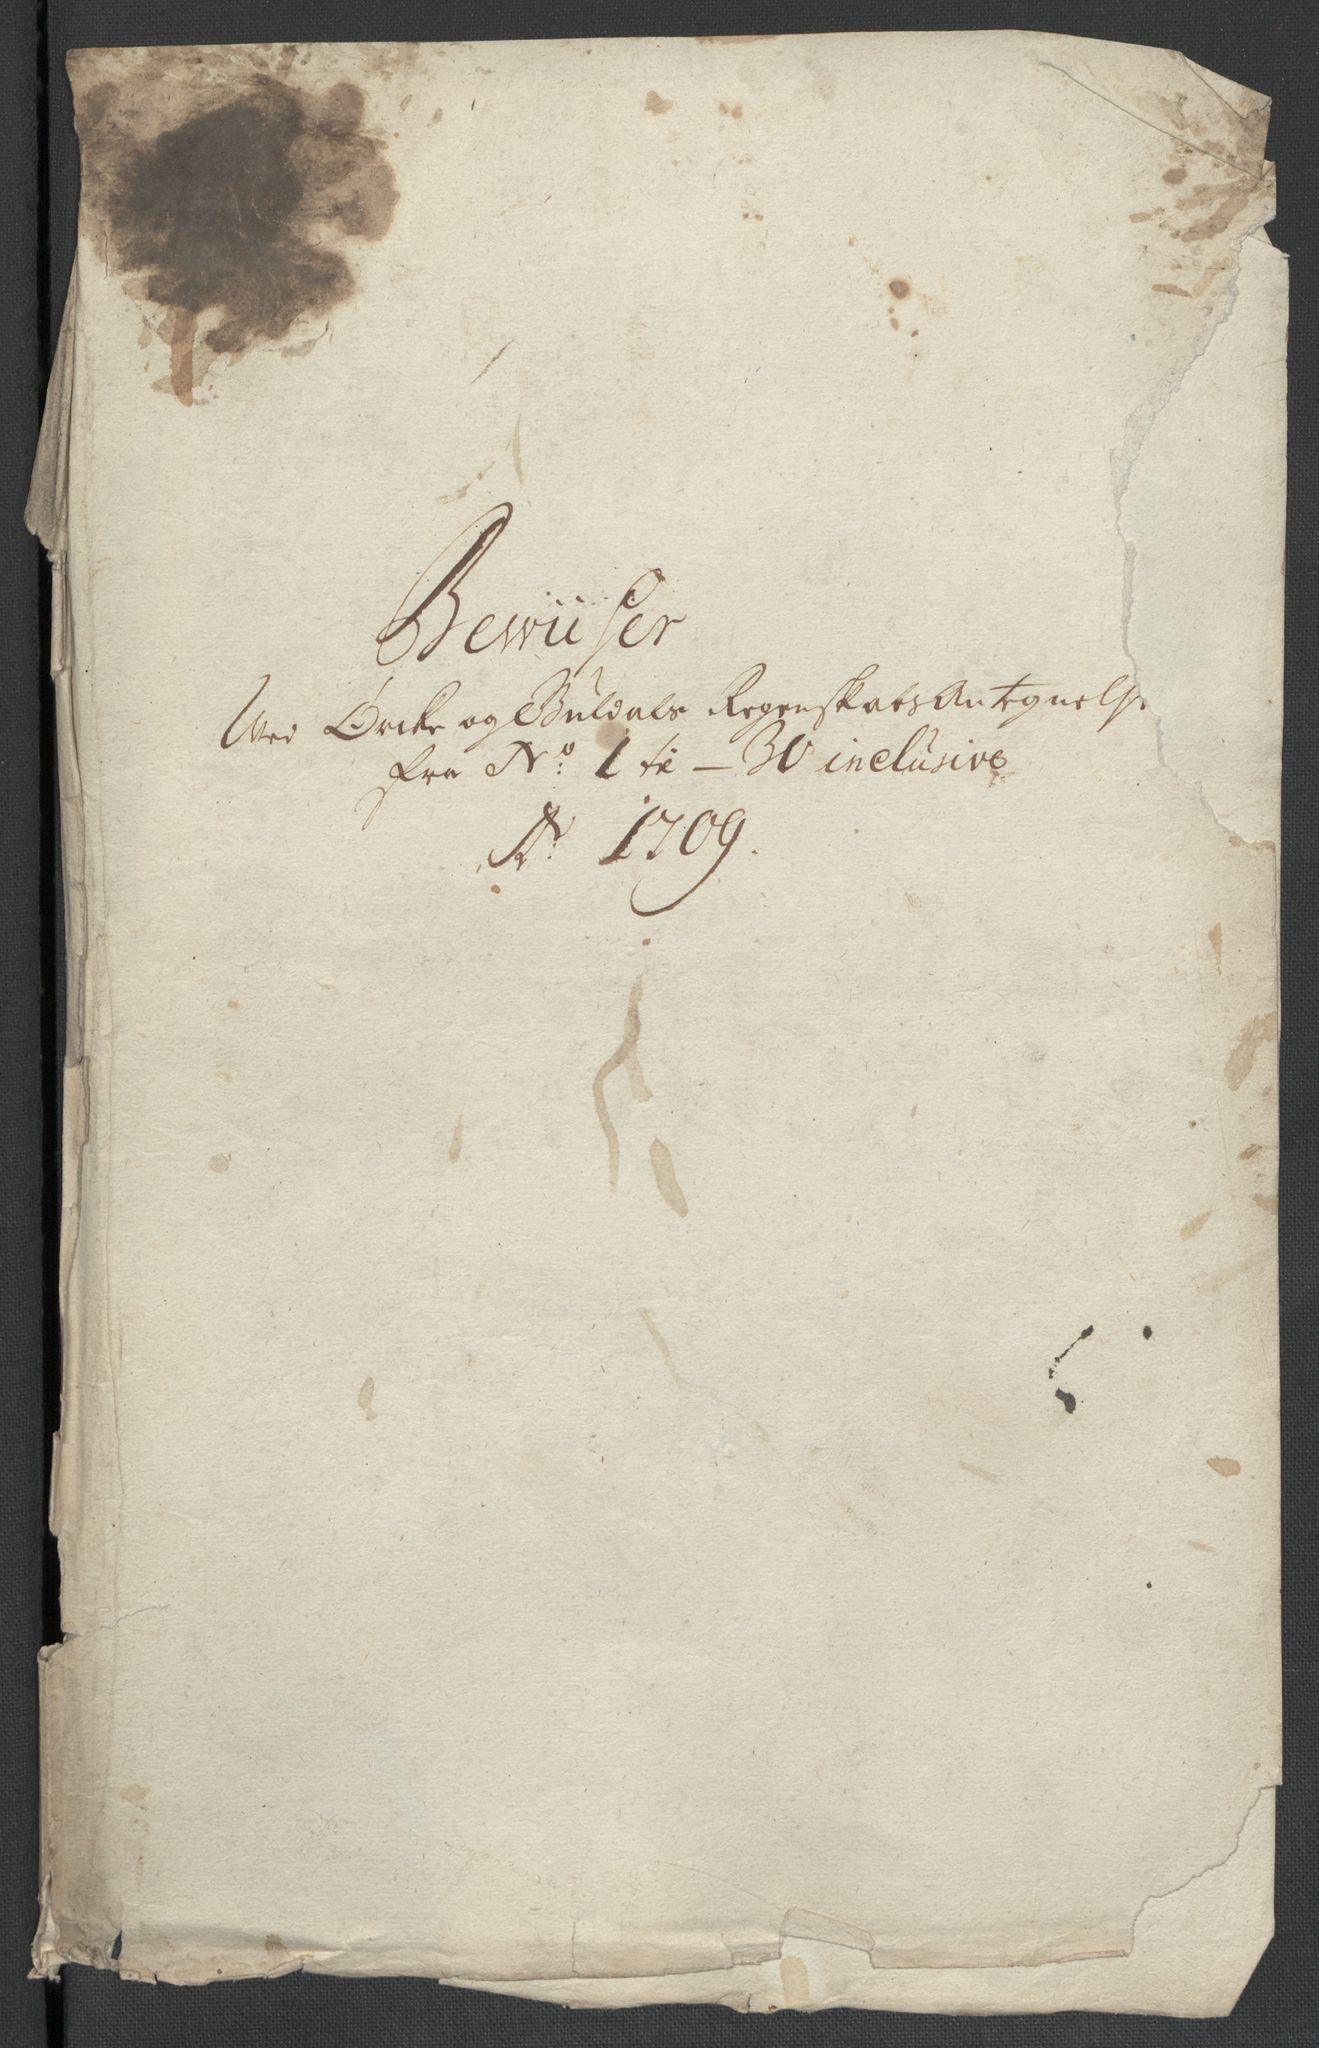 Bewiiser
Ved Orcke og Guldals Regenskabs Antegnelse
fra No: 1 til — 30 inclusive
Ao: 1709.